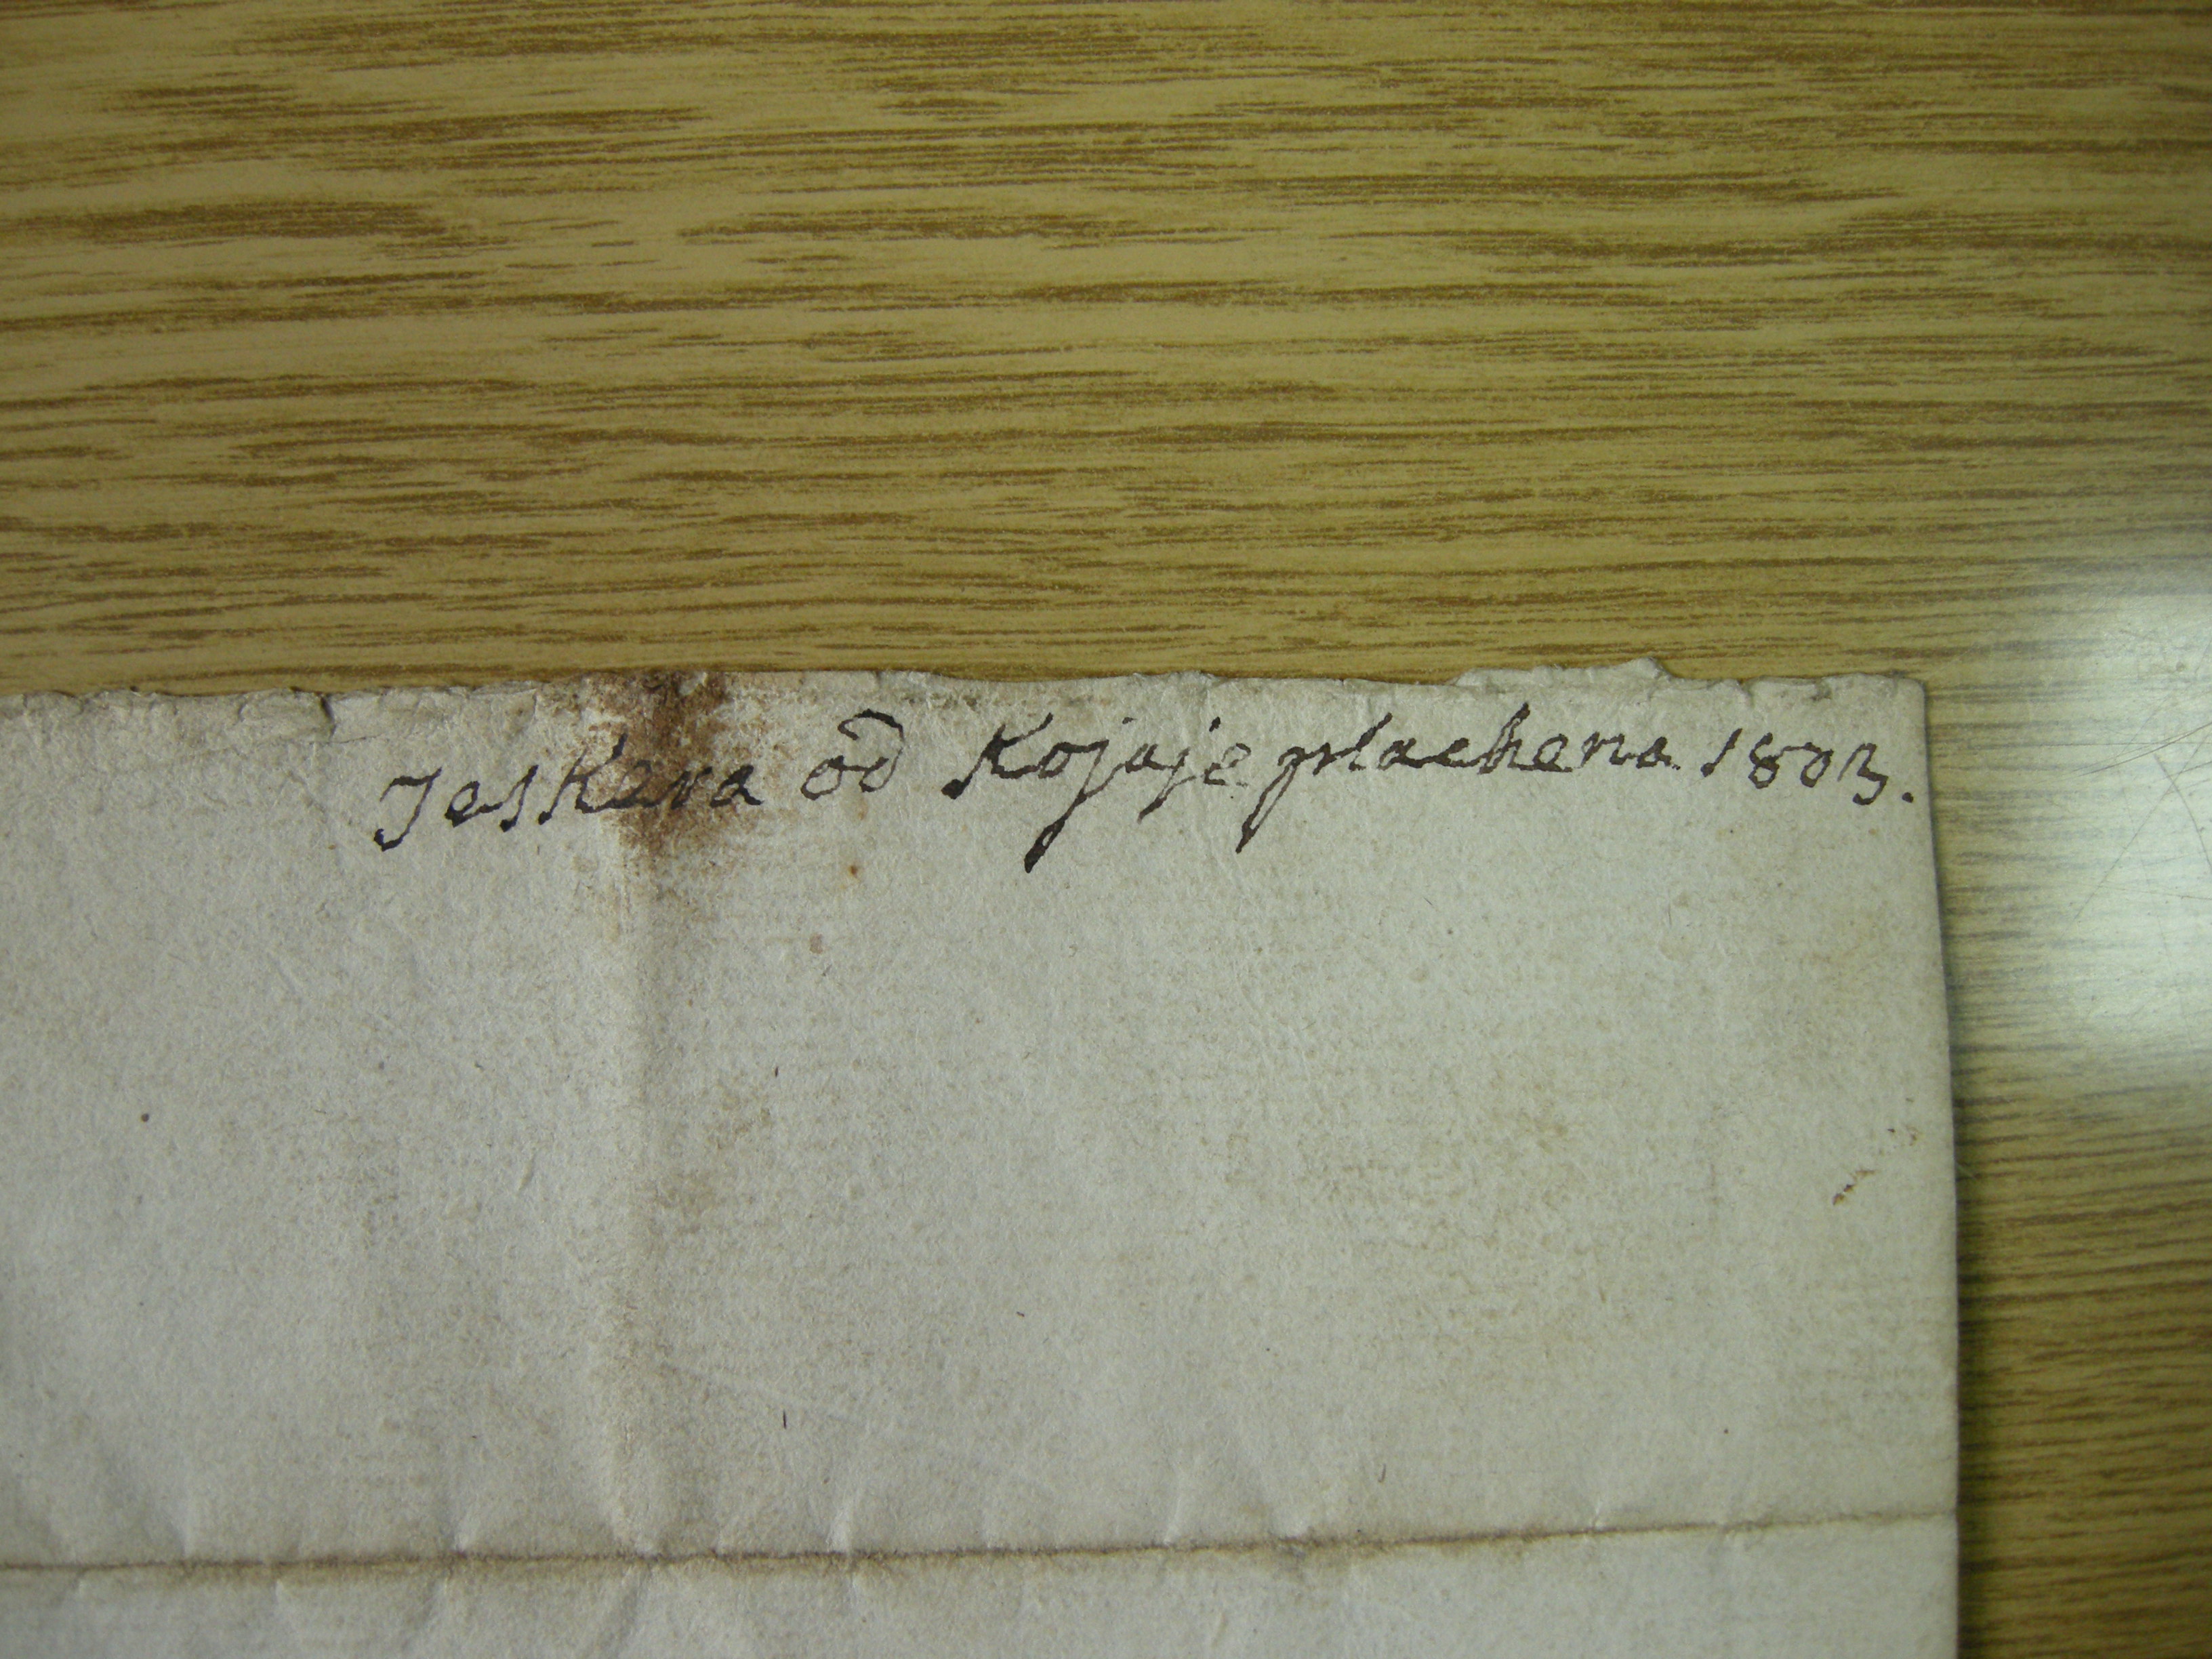 Jeskera od Kojaje plachena 1803.